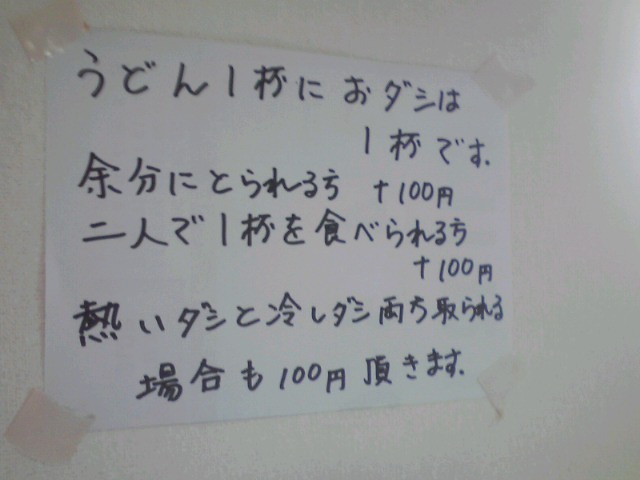 うどん1杯におダシは
1杯です.
余分にとられる方 +100円
二人で1杯を食べられる方
+100円
熱いダシと冷しダシ両方取られる
場合も100円頂きます.